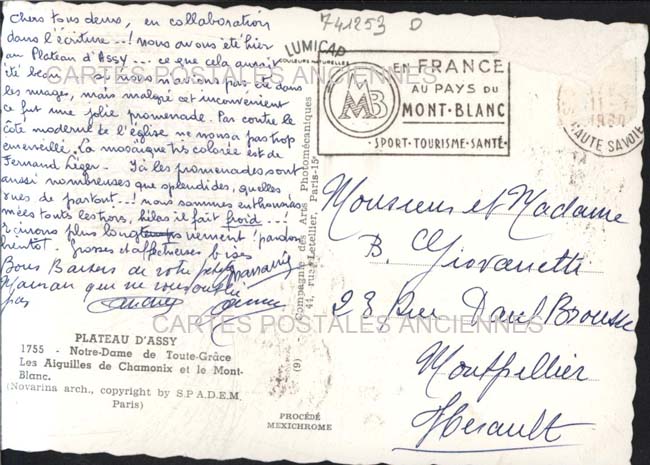 741253 D
Chers tous deux, en collaboration
dans l'écriture...! nous avons été hier
au Plateau d'Assy... ce que cela aurait
été beau si nous n'avions pas été dans
les nuages, mais malgré cet inconvénient
ce fut une jolie promenade. Par contre le
côté moderne de l'église ne nous a pas trop
émerveillé. La mosaïque très colorée est de
Fernand Léger. - Ici les promenades sont
aussi nombreuses que splendides, quelles
vues de partout...! nous sommes enthousias
mées toutes les trois, hélas il fait froid...!
écrirons plus long vement! pardon
bientôt. Grosses et affectueuses bises
Bons Baisers de votre petite
Maman qui ne vous oublie
pas
PLATEAU D'ASSY
1755 - Notre-Dame de Toute-Grâce
Les Aiguilles de Chamonix et le Mont-
Blanc.
(Novarina arch., copyright by S.P.A.D.E.M.
Paris)
LUMICAP
COULEURS NATURELLES
Compagnie des Arts Photomécaniques
44, rue Letellier, Paris-15e
(9)
PROCÉDÉ
MEXICHROME
EN FRANCE
AU PAYS DU
MONT-BLANC
MMB
SPORT·TOURISME·SANTÉ
HAUTE SAVOIE
Monsieur et Madame
B. Giovanetti
28 Rue Paul Brousse
Montpellier
Hérault
CARTES POSTALES ANCIENNES
CARTES POSTALES ANCIENNES